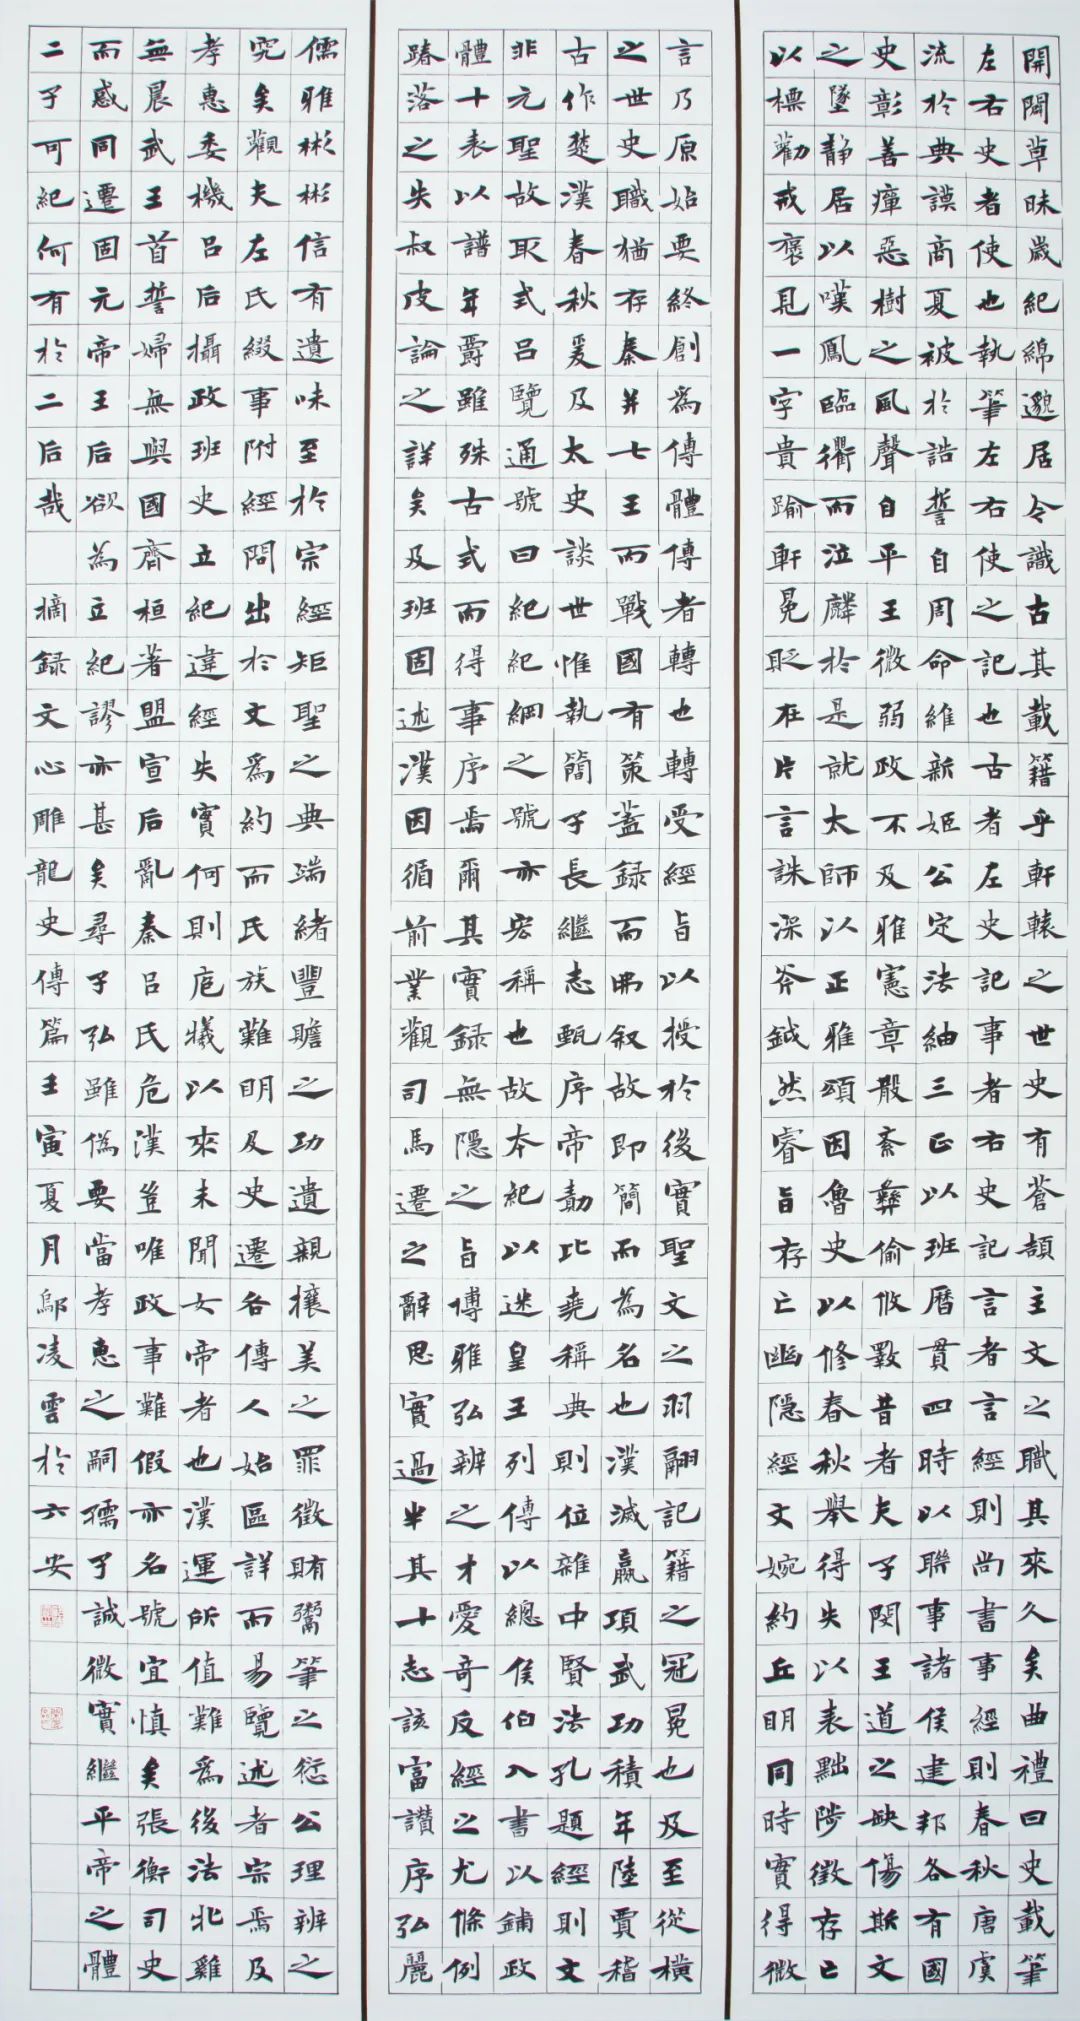 開闢草昧歲紀綿邈居今識古其載籍乎軒轅之世史有蒼頡主文之職其來久矣曲禮曰史載筆
左右史者使也執筆左右使之記也古者左史記事者右史記言者言經則尚書事經則春秋唐虞
流於典謨商夏被於誥誓自周命維新姬公定法紬三正以班曆貫四時以聯事諸侯建邦各有國
史彰善癉惡樹之風聲自平王微弱政不及雅憲章散紊彝倫攸斁昔者夫子閔王道之缺傷斯文
之墜靜居以嘆鳳臨衢而泣麟於是就太師以正雅頌因魯史以修春秋舉得失以表黜陟徵存亡
以標勸戒褒見一字貴踰軒冕貶在片言誅深斧鉞然睿旨存亡幽隱經文婉約丘明同時實得微
言乃原始要終創為傳體傳者轉也轉受經旨以授於後實聖文之羽翮記籍之冠冕也及至從橫
之世史職猶存秦并七王而戰國有策蓋録而弗叙故即簡而為名也漢滅嬴項武功積年陸賈稽
古作楚漢春秋爰及太史談世惟執簡子長繼志甄序帝勣比堯稱典則位雜中賢法孔題經則文
非元聖故取式呂覽通號曰紀紀綱之號亦宏稱也故本紀以述皇王列傳以總侯伯八書以鋪政
體十表以譜年爵雖殊古式而得事序焉爾其實録無隱之旨博雅弘辨之才愛奇反經之尤條例
踳落之失叔皮論之詳矣及班固述漢因循前業觀司馬遷之辭思實過半其十志該富讚序弘麗
儒雅彬彬信有遺味至於宗經矩聖之典端緒豐贍之功遺親攘美之罪徵賄鬻筆之愆公理辨之
究矣觀夫左氏綴事附經間出於文為約而氏族難明及史遷各傳人始區詳而易覽述者宗焉及
孝惠委機呂后攝政班史立紀違經失實何則庖犧以來未聞女帝者也漢運所值難為後法牝雞
無晨武王首誓婦無與國齊桓著盟宣后亂秦呂氏危漢豈唯政事難假亦名號宜慎矣張衡司史
而惑同遷固元帝王后欲為立紀謬亦甚矣尋子弘雖偽要當孝惠之嗣孺子誠微實繼平帝之體
二子可紀何有於二后哉 摘録文心雕龍史傳篇壬寅夏月鄔凌雲於六安